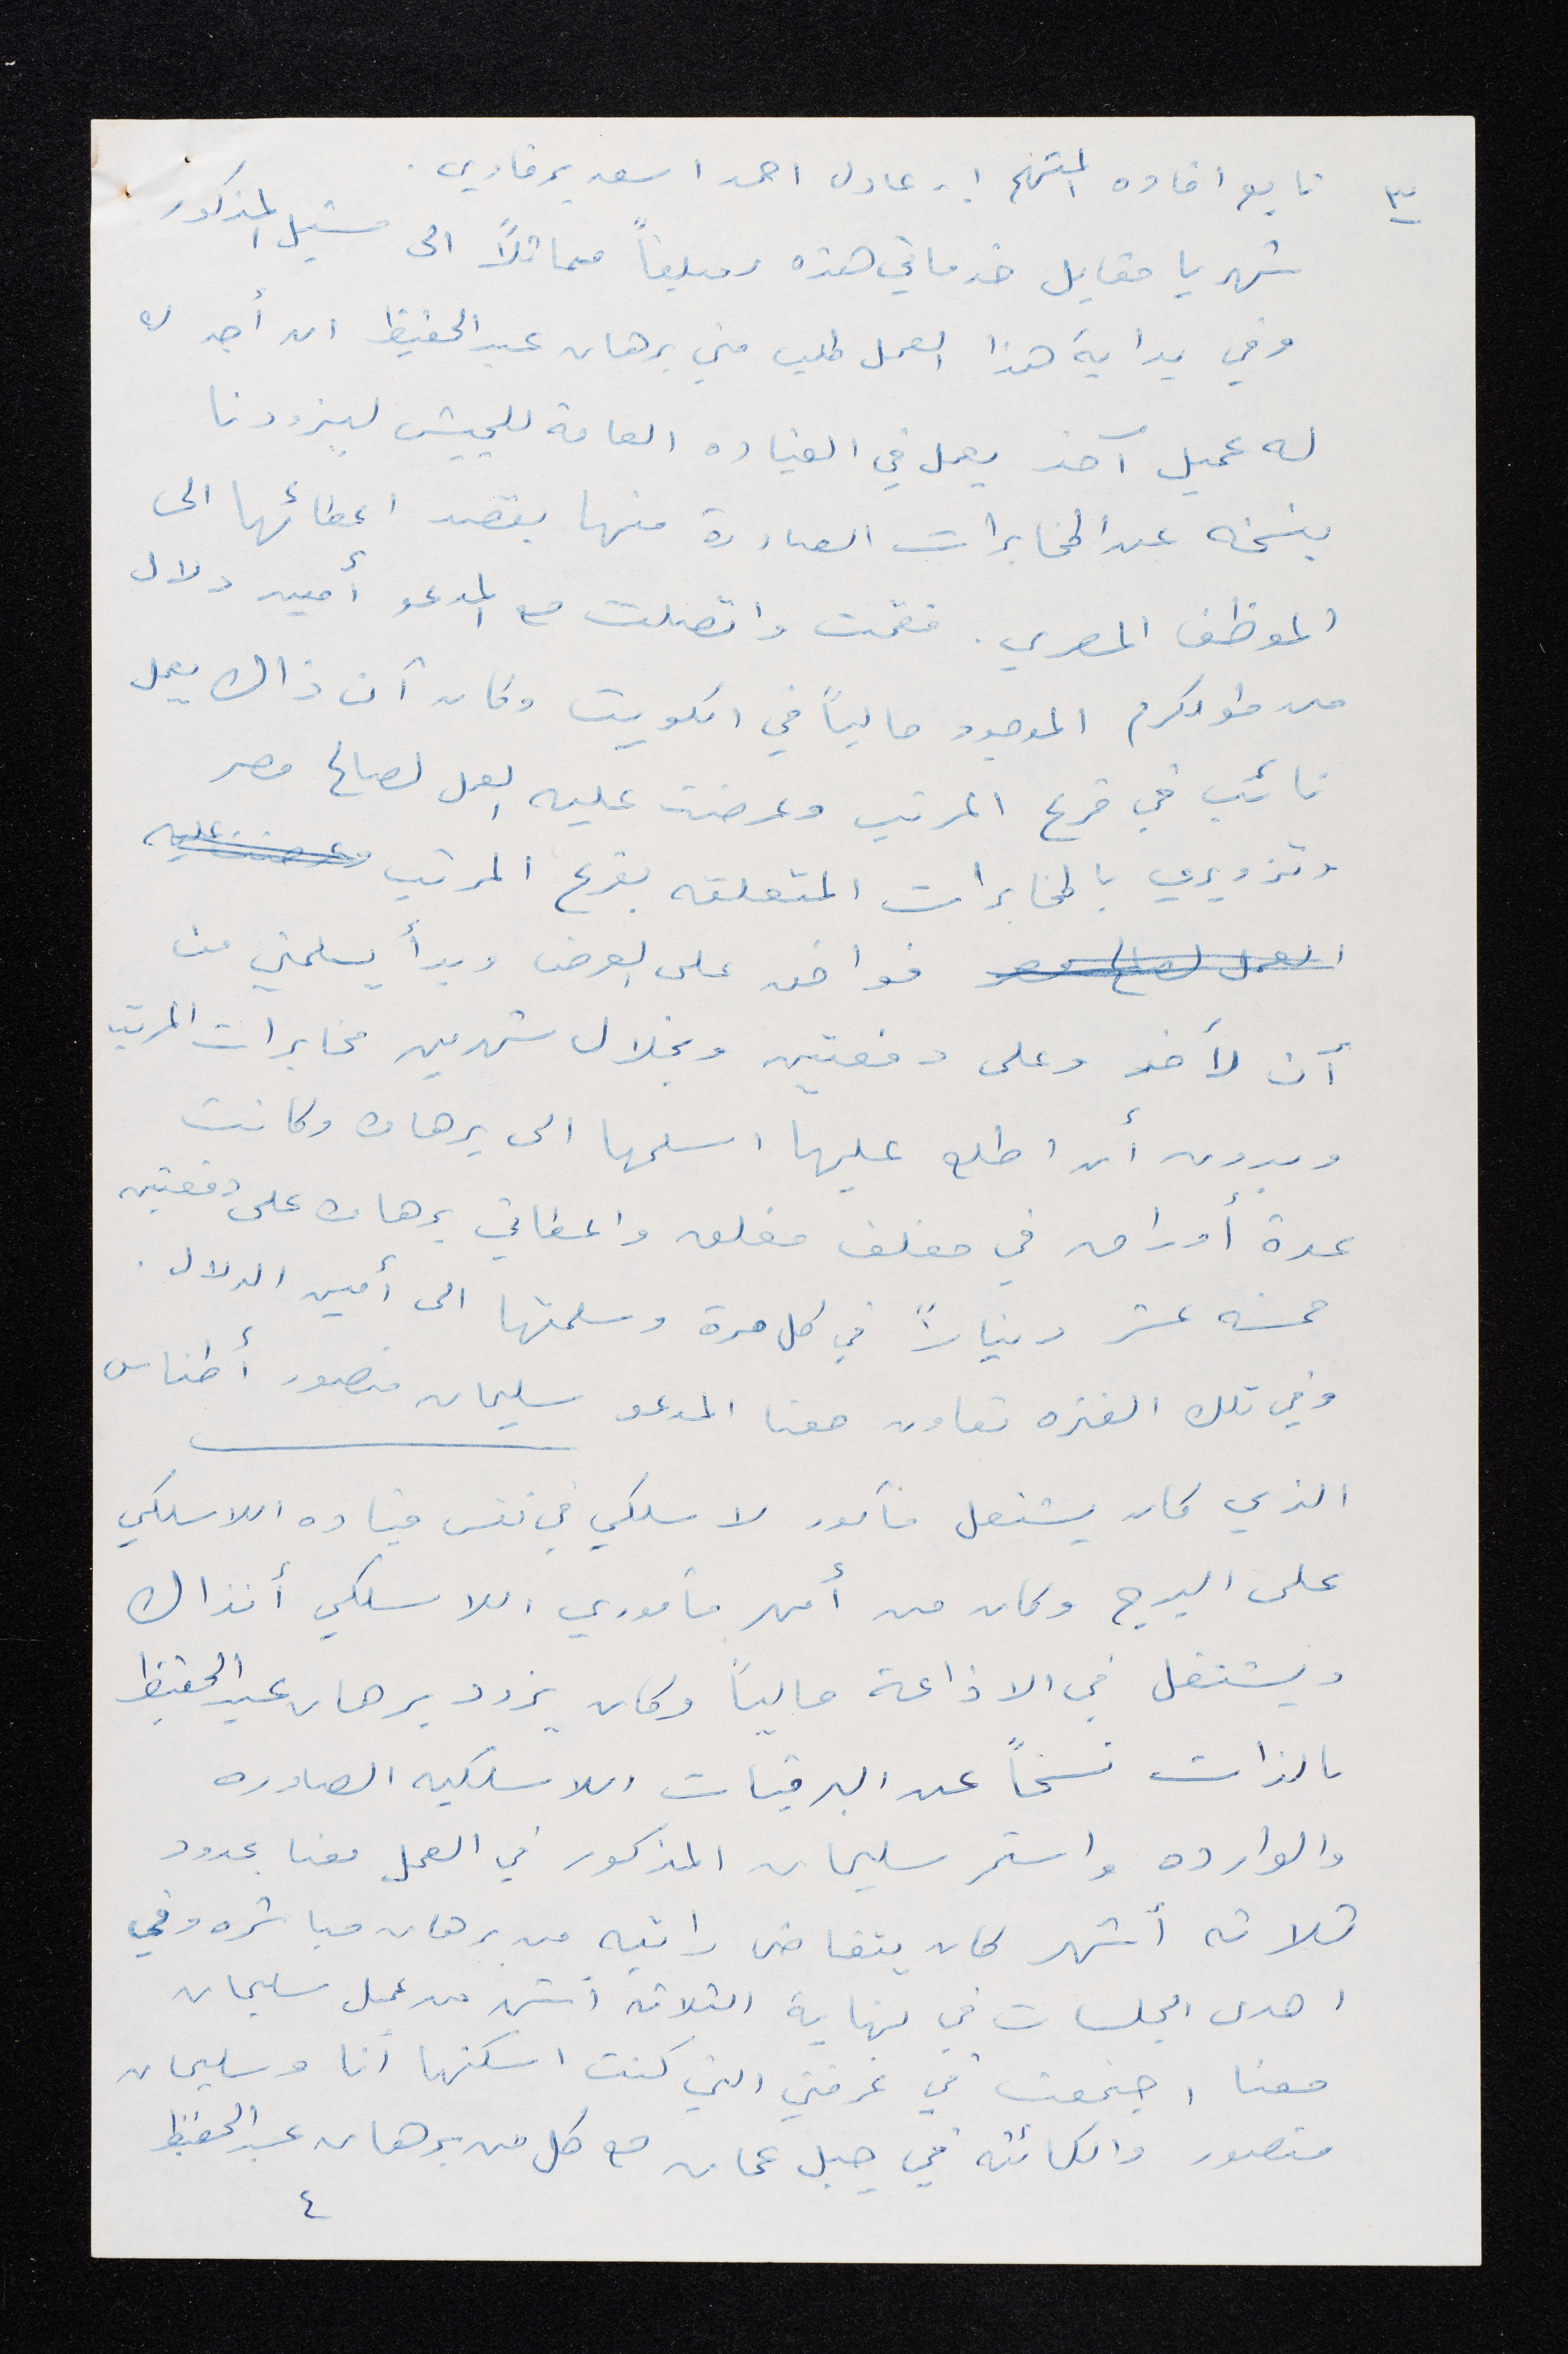 ٣ تابع افاده المتهم ١. عادل احمد اسعد برقاوي.
شهريا مقابل خدماتي هذه ومبلغاً مماثلاً الى مشيل المذكور
وفي بداية هذا العمل طلب مني برهان عبد الحفيظ ان أجد له
له عميل آخر يعمل في القياده العامة للجيش ليزودنا
بنسخه عن المخابرات الصادرة منها بقصد اعطائها الى
الموظف المصري. فقمت واتصلت مع المدعو أمين دلال
من طولكرم الموجود حالياً في الكويت وكان آن ذاك يعمل
نائب في فرع المرتب وعرضت عليه العمل لصالح مصر
وتزويدي بالمخابرات المتعلقه بفرع المرتب وعرضت عليه
العمل لصالح مصر فوافق على العرض وبدأ يسلمني من
آن لأخر وعلى دفعتين وبخلال شهرين مخابرات المرتب
وبدون أن اطلع عليها اسلمها الى برهان وكانت
عدة أوراق في مغلف مغلق واعطاني برهان على دفعتين
خمسه عشر ديناراً في كل مرة وسلمتها الى أمين الدلال.
وفي تلك الفتره تعاون معنا المدعو سليمان منصور أطناس
الذي كان يشتغل مأمور لاسلكي في نفس قياده اللاسلكي
على البرج وكان من أمهر مأموري اللاسلكي أنذاك
ويشتغل في الاذاعة حالياً وكان يزود برهان عبد الحفيظ
بالذات نسخاً عن البرقيات اللاسلكيه الصادره
والوارده واستمر سليمان المذكور في العمل معنا بحدود
ثلاثه أشهر كان يتقاضى راتبه من برهان مباشره وفي
احدى الجلسات في نهاية الثلاثه أشهر من عمل سليمان
معنا اجتمعت في غرفتي التي كنت اسكنها أنا وسليمان
منصور والكائنه في جبل عمان مع كل من برهان عبد الحفيظ
٤